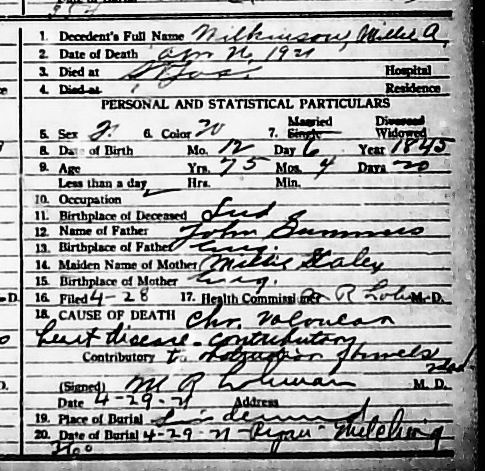 1. Decedent's Full Name Wilkinson, Millie A.
2. Date of Death 1921
3. Died at St Jos. Hospital
4. Died at Residence
PERSONAL AND STATISTICAL PARTICULARS
5. Sex F. 6. Color W 7. Married Single Divorced Widowed
8. Date of Birth Mo. 12 Day 6 Year 1845
9. Age Yrs. 75 Mos. 4 Days 20
Less than a day Hrs. Min.
10. Occupation
11. Birthplace of Deceased Ind
12. Name of Father John Summers
13. Birthplace of Father
14. Maiden Name of Mother Millie Staley
15. Birthplace of Mother
16. Filed 4-28 17. Health Commissioner M. R. Lohman M. D.
18. CAUSE OF DEATH Chr. Valvular
heart disease - contributory
Contributory to obstruction of bowels
(Signed) M R Lohman M. D.
Date 4-29-21 Address
19. Place of Burial Lindenwood
20. Date of Burial 4-29-21